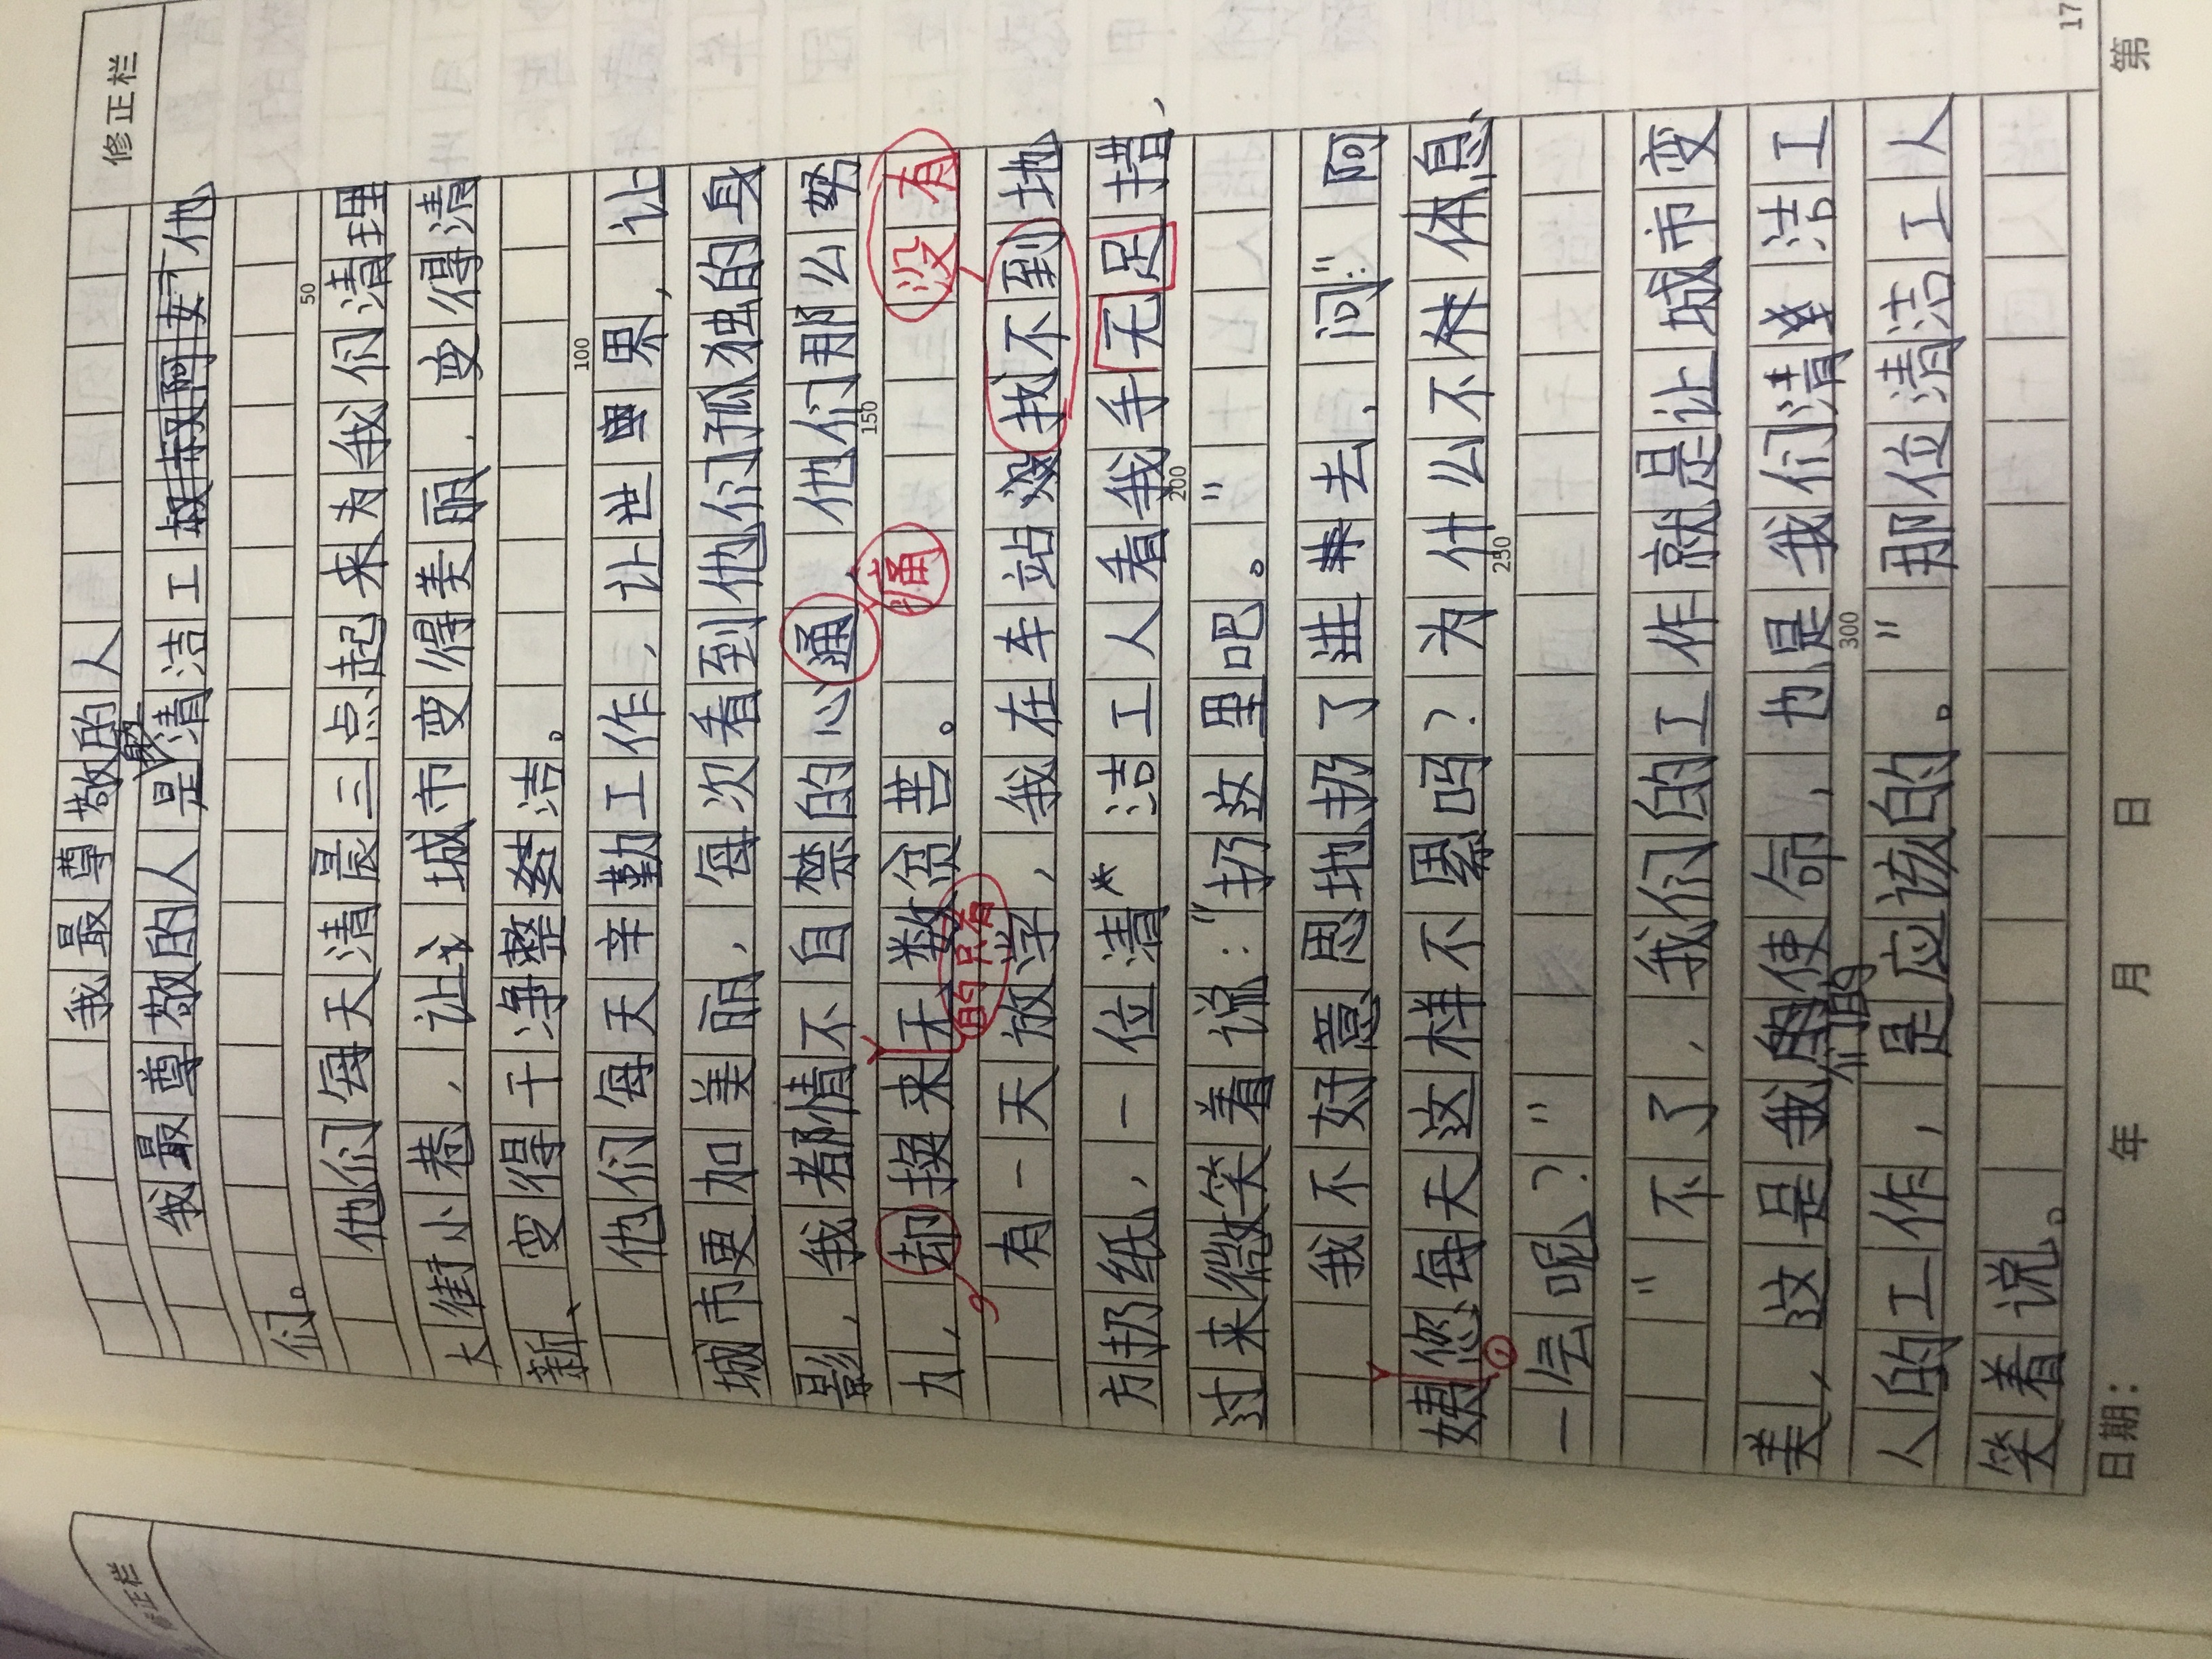 修正栏
我最尊敬的人
我最尊敬的人是清洁工他
们。
50
他们每天清晨三点起来为我们清理
大街小巷,让城市变得美丽,变得清
新、变得干净整洁。
100
他们每天辛勤工作,让世界,让
城市更加美丽,每次看到他们孤独的身
影,我都情不自禁的心通,他们那么努
150
痛
没有
力,却换来无数贫苦。
的只有
有一天放学,我在车站找不到地
方扔纸,一位清洁工人看我手无足措,
200
过来微笑着说:"扔这里吧。"
我不好意思地扔了进去,问:"阿
姨您每天这样不累吗?为什么不休息
250
一会呢?"
"不了,我们的工作就是让城市变
美,这是我们的使命,也是我们清洁工
300
人的工作,是应该的。"那位清洁工人
笑着说。
17
日期: 年 月 日 第
修正栏